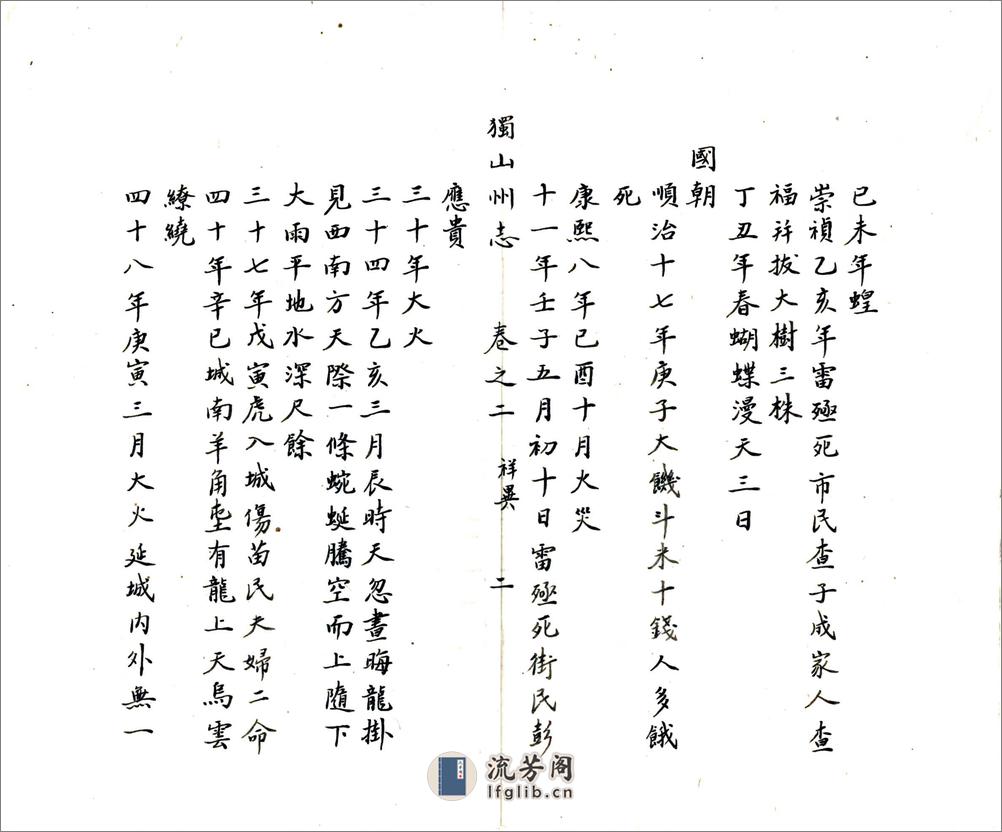 已未年蝗
崇禎乙亥年雷殛死市民查子成家人查
福并拔大樹三株
丁丑年春蝴蝶漫天三日
國朝
順治十七年庚子大饑斗米十錢人多餓
死
康熙八年已酉十月火災
十一年壬子五月初十日雷殛死街民彭
獨山州志 卷之二 祥異 二
應貴
三十年大火
三十四年乙亥三月辰時天忽晝晦龍掛
見西南方天際一條蜿蜒騰空而上隨下
大雨平地水深尺餘
三十七年戊寅虎入城傷苗民夫婦二命
四十年辛已城南羊角坉有龍上天烏雲
繚繞
四十八年庚寅三月大火延城内外無一
流芳阁
lfglib.cn